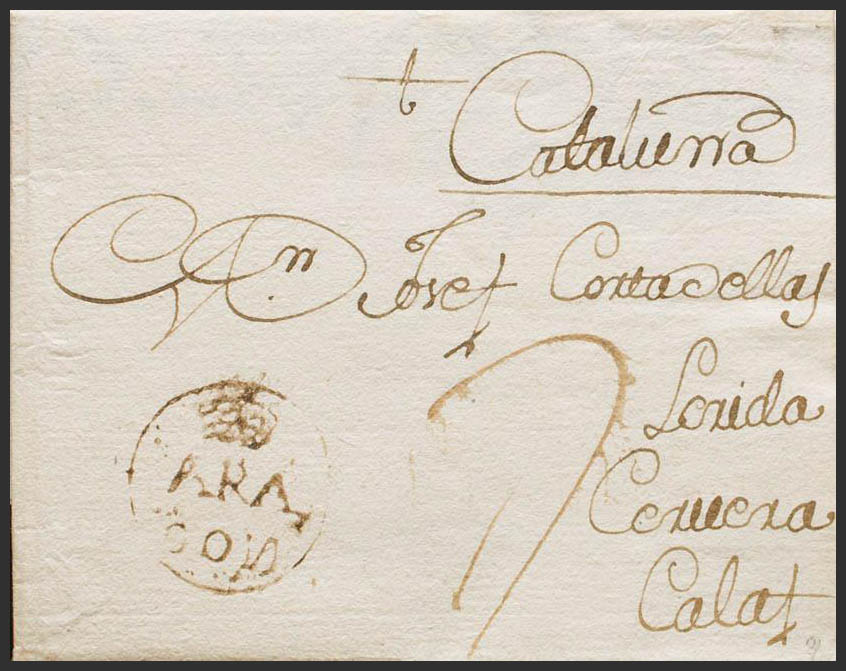 Cataluña
An Josef Cortadellas
Lerida
Cervera
Calaf
ARA
GON
7